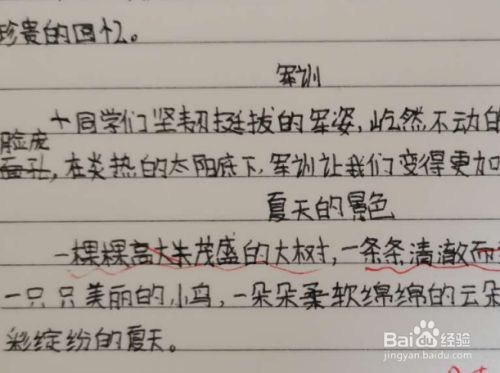 珍贵的回忆。
军训
十同学们坚韧挺拔的军姿,屹然不动的
脸庞
面孔,在炎热的太阳底下,军训让我们变得更加
夏天的景色
一棵棵高大茂盛的大树,一条条清澈而
一只只美丽的小鸟,一朵朵柔软绵绵的云朵
彩缤纷的夏天。
Baidu经验
jingyan.baidu.com